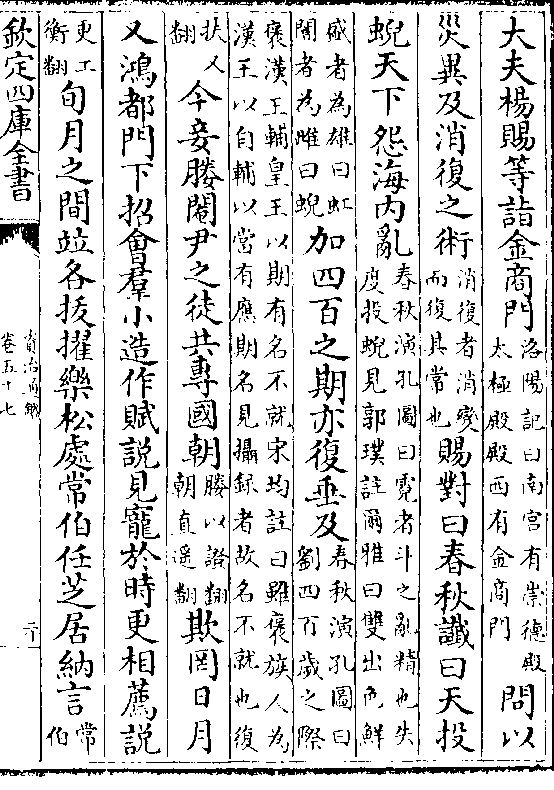 大夫楊賜等詣金商門洛陽記曰南宮有崇德殿太極殿殿西有金商門問以
災異及消復之術消復者消變而復其常也賜對曰春秋讖曰天投
蜺天下怨海內亂春秋演孔圖曰霓者斗之亂精也失度投蜺見郭璞註爾雅曰雙出色鮮
盛者為雄曰虹闇者為雌曰蜺加四百之期亦復垂及春秋演孔圖曰劉四百歲之際
褒漢王輔皇王以期有名不就宋均註曰雖褒族人為漢王以自輔以當有應期名見攝録者故名不就也復
扶又翻今妾媵閹尹之徒共專國朝媵以證翻朝直遥翻欺罔日月
又鴻都門下招會羣小造作賦說見寵於時更相薦說
更工衡翻旬月之間竝各拔擢樂松處常伯任芝居納言常伯
欽定四庫全書
資治通鑑
卷五十七
二十